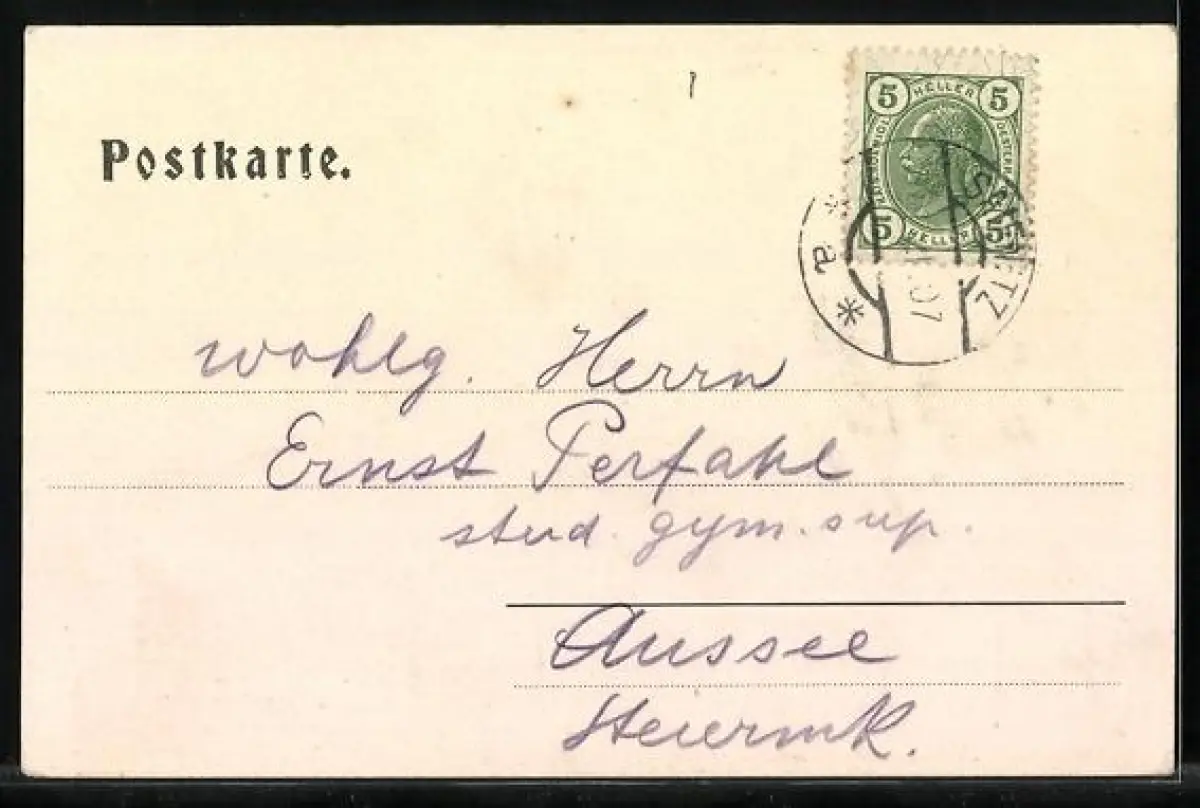 Postkarte.
5 HELLER 5
5 HELLER 5
a
07
wohlg. Herrn
Ernst Perfahl
stud. gym. sup.
Aussee
Steiermk.